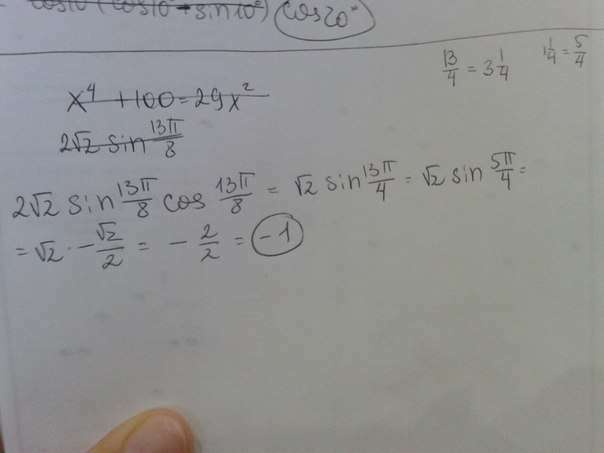 cos10°(cos10°+sin10°) cos20°
13/4 = 3 1/4   1 1/4 = 5/4
x⁴ + 100 = 29x²
2√2 sin 13π/8
2√2 sin 13π/8 cos 13π/8 = √2 sin 13π/4 = √2 sin 5π/4 =
= √2 · -√2/2 = -2/2 = -1